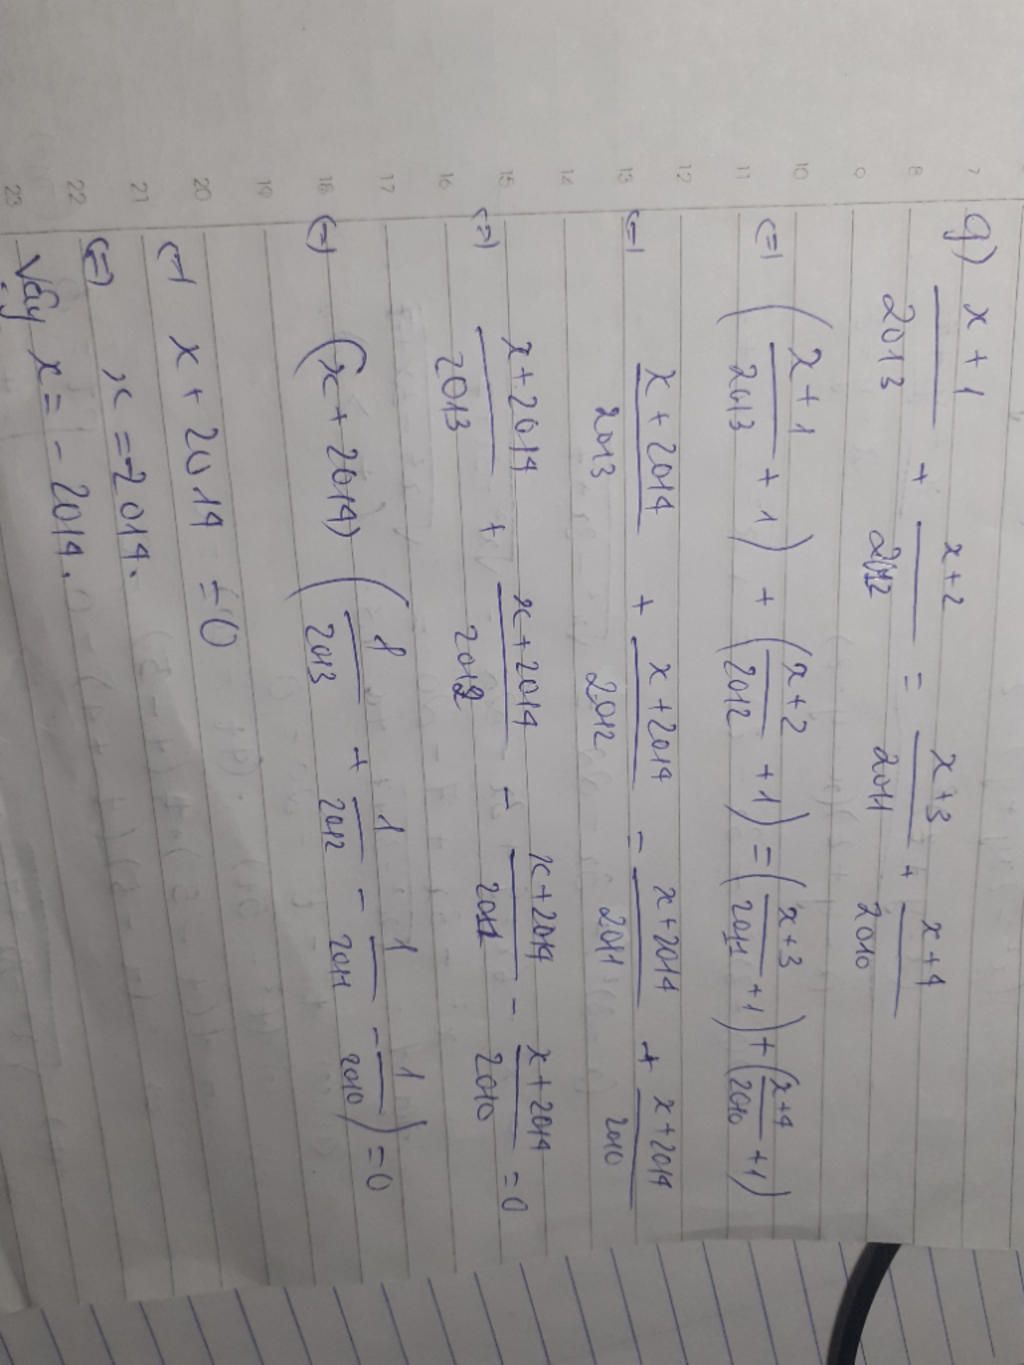 g) x+1/2013 + x+2/2012 = x+3/2011 + x+4/2010
(=) (x+1/2013 + 1) + (x+2/2012 + 1) = (x+3/2011 + 1) + (x+4/2010 + 1)
(=) x+2014/2013 + x+2014/2012 = x+2014/2011 + x+2014/2010
(=) x+2014/2013 + x+2014/2012 - x+2014/2011 - x+2014/2010 = 0
(=) (x+2014) (1/2013 + 1/2012 - 1/2011 - 1/2010) = 0
(=) x+2014 = 0
(=) x = -2014.
Vậy x = -2014.
7
8
9
10
11
12
13
14
15
16
17
18
19
20
21
22
23